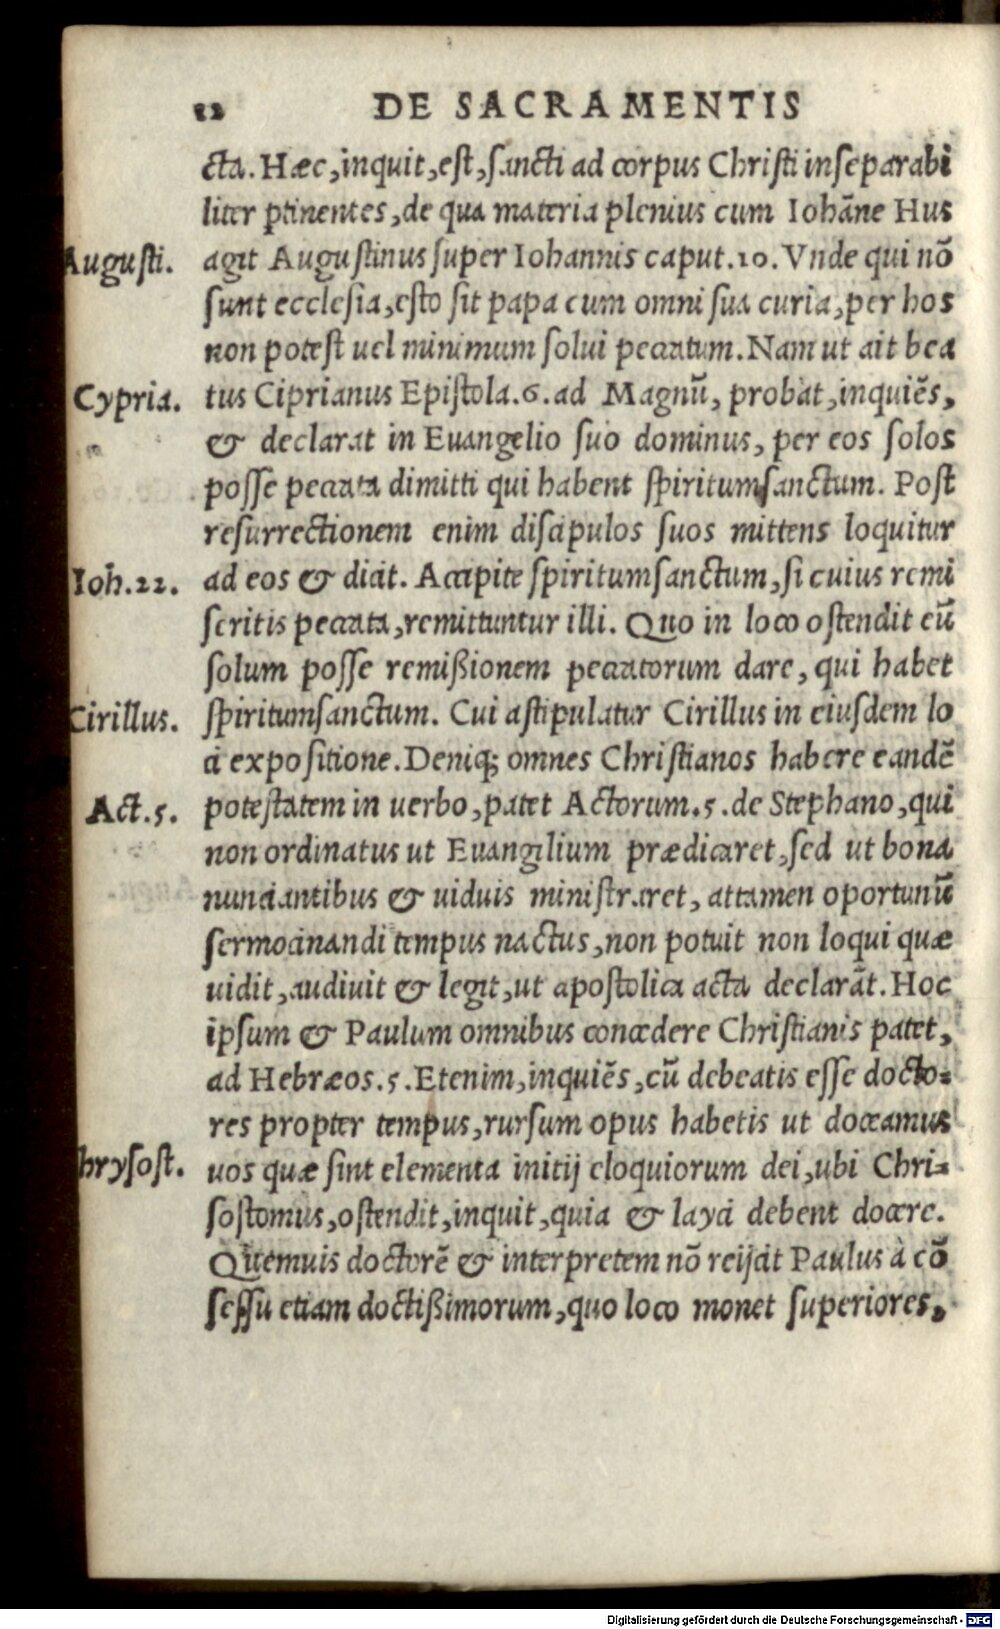 12 DE SACRAMENTIS
cta. Hæc, inquit, est, sancti ad corpus Christi inseparabi
liter ptinentes, de qua materia plenius cum Iohāne Hus
Augusti. agit Augustinus super Iohannis caput.10. Vnde qui nō
sunt ecclesia, esto sit papa cum omni sua curia, per hos
non potest uel minimum solui peccatum. Nam ut ait bea
Cypria. tus Ciprianus Epistola.6. ad Magnū, probat, inquiēs,
& declarat in Euangelio suo dominus, per eos solos
posse peccata dimitti qui habent spiritumsanctum. Post
resurrectionem enim discipulos suos mittens loquitur
Ioh.22. ad eos & dicit. Accipite spiritumsanctum, si cuius remi
seritis peccata, remittuntur illi. Quo in loco ostendit eū
solum posse remißionem peccatorum dare, qui habet
Cirillus. spiritumsanctum. Cui astipulatur Cirillus in eiusdem lo
ci expositione. Deniq; omnes Christianos habere eandē
Act.5. potestatem in uerbo, patet Actorum.5. de Stephano, qui
non ordinatus ut Euangelium prædicaret, sed ut bona
nunciantibus & uiduis ministraret, attamen oportunū
sermocinandi tempus nactus, non potuit non loqui quæ
uidit, audiuit & legit, ut apostolica acta declarāt. Hoc
ipsum & Paulum omnibus concedere Christianis patet,
ad Hebræos.5. Etenim, inquiēs, cū debeatis esse docto=
res propter tempus, rursum opus habetis ut doceamus
hrysost. uos quæ sint elementa initij eloquiorum dei, ubi Chri=
sostomus, ostendit, inquit, quia & layci debent docere.
Quemuis doctorē & interpretem nō reijcit Paulus à cō
sessu etiam doctißimorum, quo loco monet superiores,
Digitalisierung gefördert durch die Deutsche Forschungsgemeinschaft - DFG